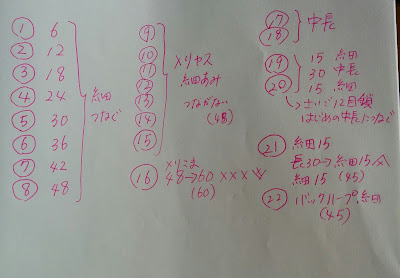 ① 6
② 12
③ 18
④ 24
⑤ 30
⑥ 36
⑦ 42
⑧ 48
細編
つなぐ
⑨
⑩
⑪
⑫
⑬
⑭
⑮
メリヤス
細編あみ
つながない
(48)
⑯ 48→60 ×××
(60)
⑰
⑱
中長
⑲ 15 細編
30 中長
⑳ 15 細編
はじめの中長につなぐ
㉑ 細編15
長30→細編15
細編15 (45)
㉒ バックループ細編
(45)